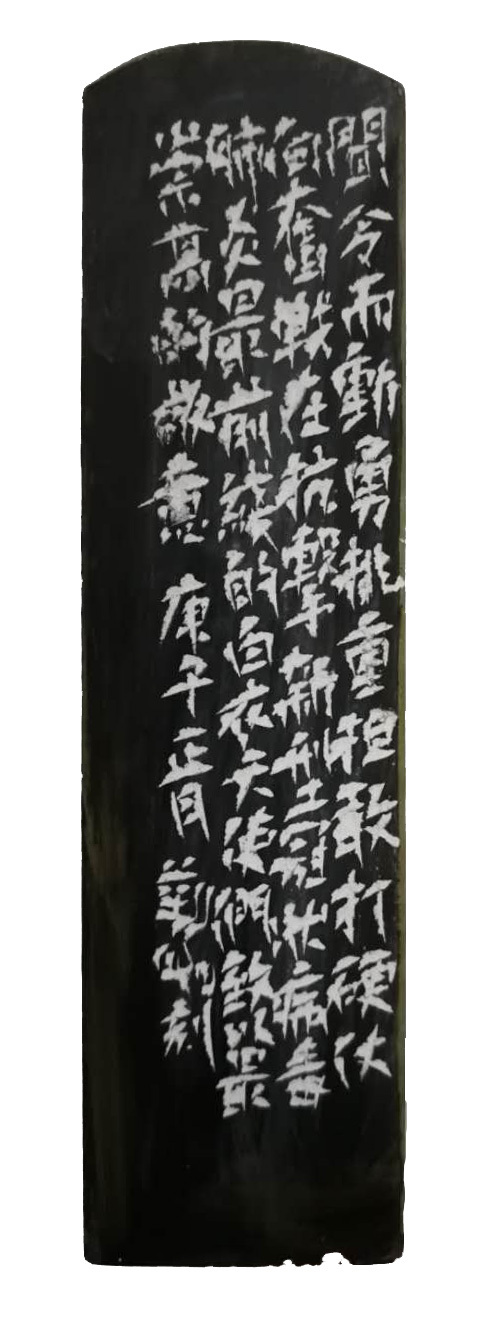 聞令而動勇挑重担敢打硬仗
向奮戰在抗擊新型冠状病毒
肺炎最前綫的白衣天使們致以最
崇高的敬意 庚子正月 刻